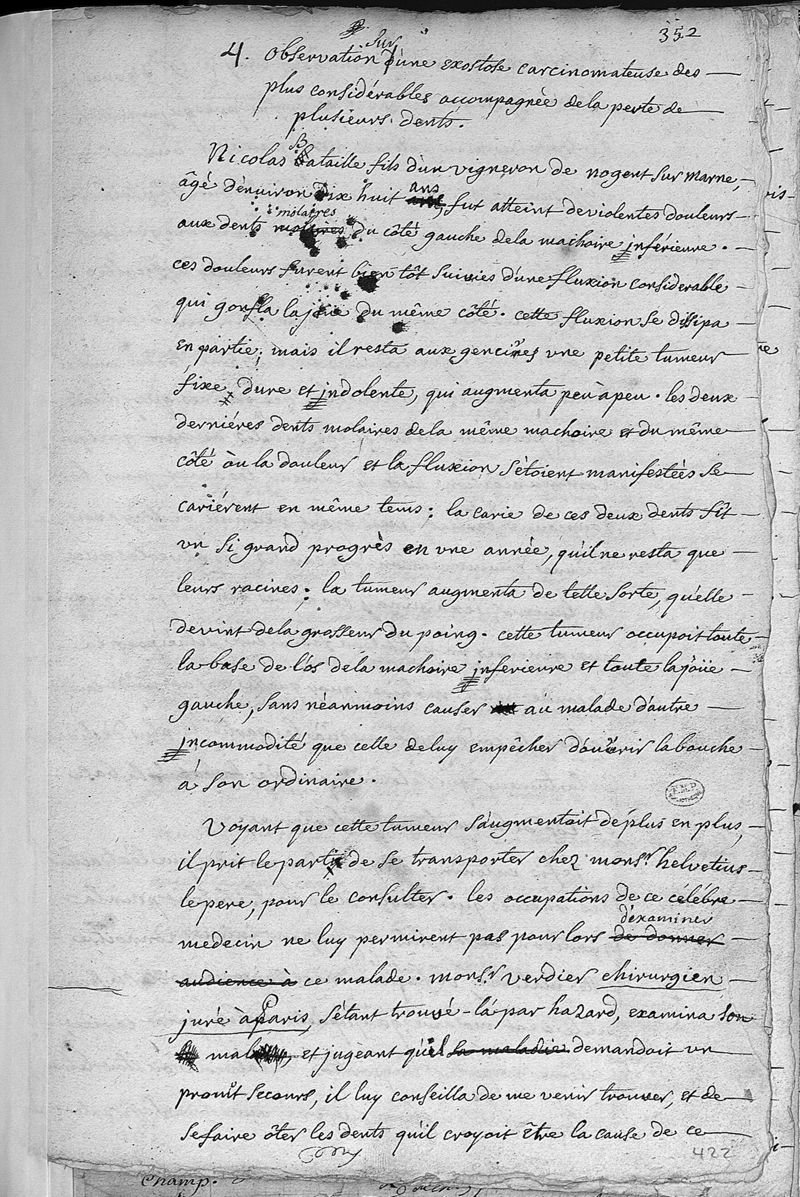 352
4. Observation sur une exostose carcinomateuse des
plus considérables accompagnée de la perte de
plusieurs dents.
Nicolas Bataille fils d'un vigneron de nogent sur marne,
âgé d'environ dix huit ans, fut atteint de violentes douleurs
aux dents molaires du côté gauche de la machoire inférieure.
ces douleurs furent bien tôt suivies d'une fluxion considerable
qui gonfla la joüe du même côté. cette fluxion se dissipa
en partie; mais il resta aux gencives une petite tumeur
fixe, dure et indolente, qui augmenta peu à peu. les deux
derniéres dents molaires de la même machoire et du même
côté où la douleur et la fluxion s'étoient manifestées se
cariérent en même tems: la carie de ces deux dents fit
un si grand progrès en une année, qu'il ne resta que
leurs racines: la tumeur augmenta de telle sorte, qu'elle
devint de la grosseur du poing. cette tumeur occupoit toute
la base de l'os de la machoire inferieure et toute la joüe
gauche, sans néanmoins causer au malade d'autre
incommodité que celle de luy empêcher d'ouvrir la bouche
à son ordinaire.
Voyant que cette tumeur s'augmentoit de plus en plus,
il prit le parti de se transporter chez mons.r helvetius
le pere, pour le consulter. les occupations de ce célébre
d'éxaminer
medecin ne luy permirent pas pour lors de donner
audience à ce malade. mons.r verdier chirurgien
juré à Paris, s'étant trouvé-là par hazard, examina son
mal, et jugeant qu'il la maladie demandoit un
promt secours, il luy conseilla de me venir trouver, et de
se faire ôter les dents qu'il croyoit être la cause de ce
422
Champ.